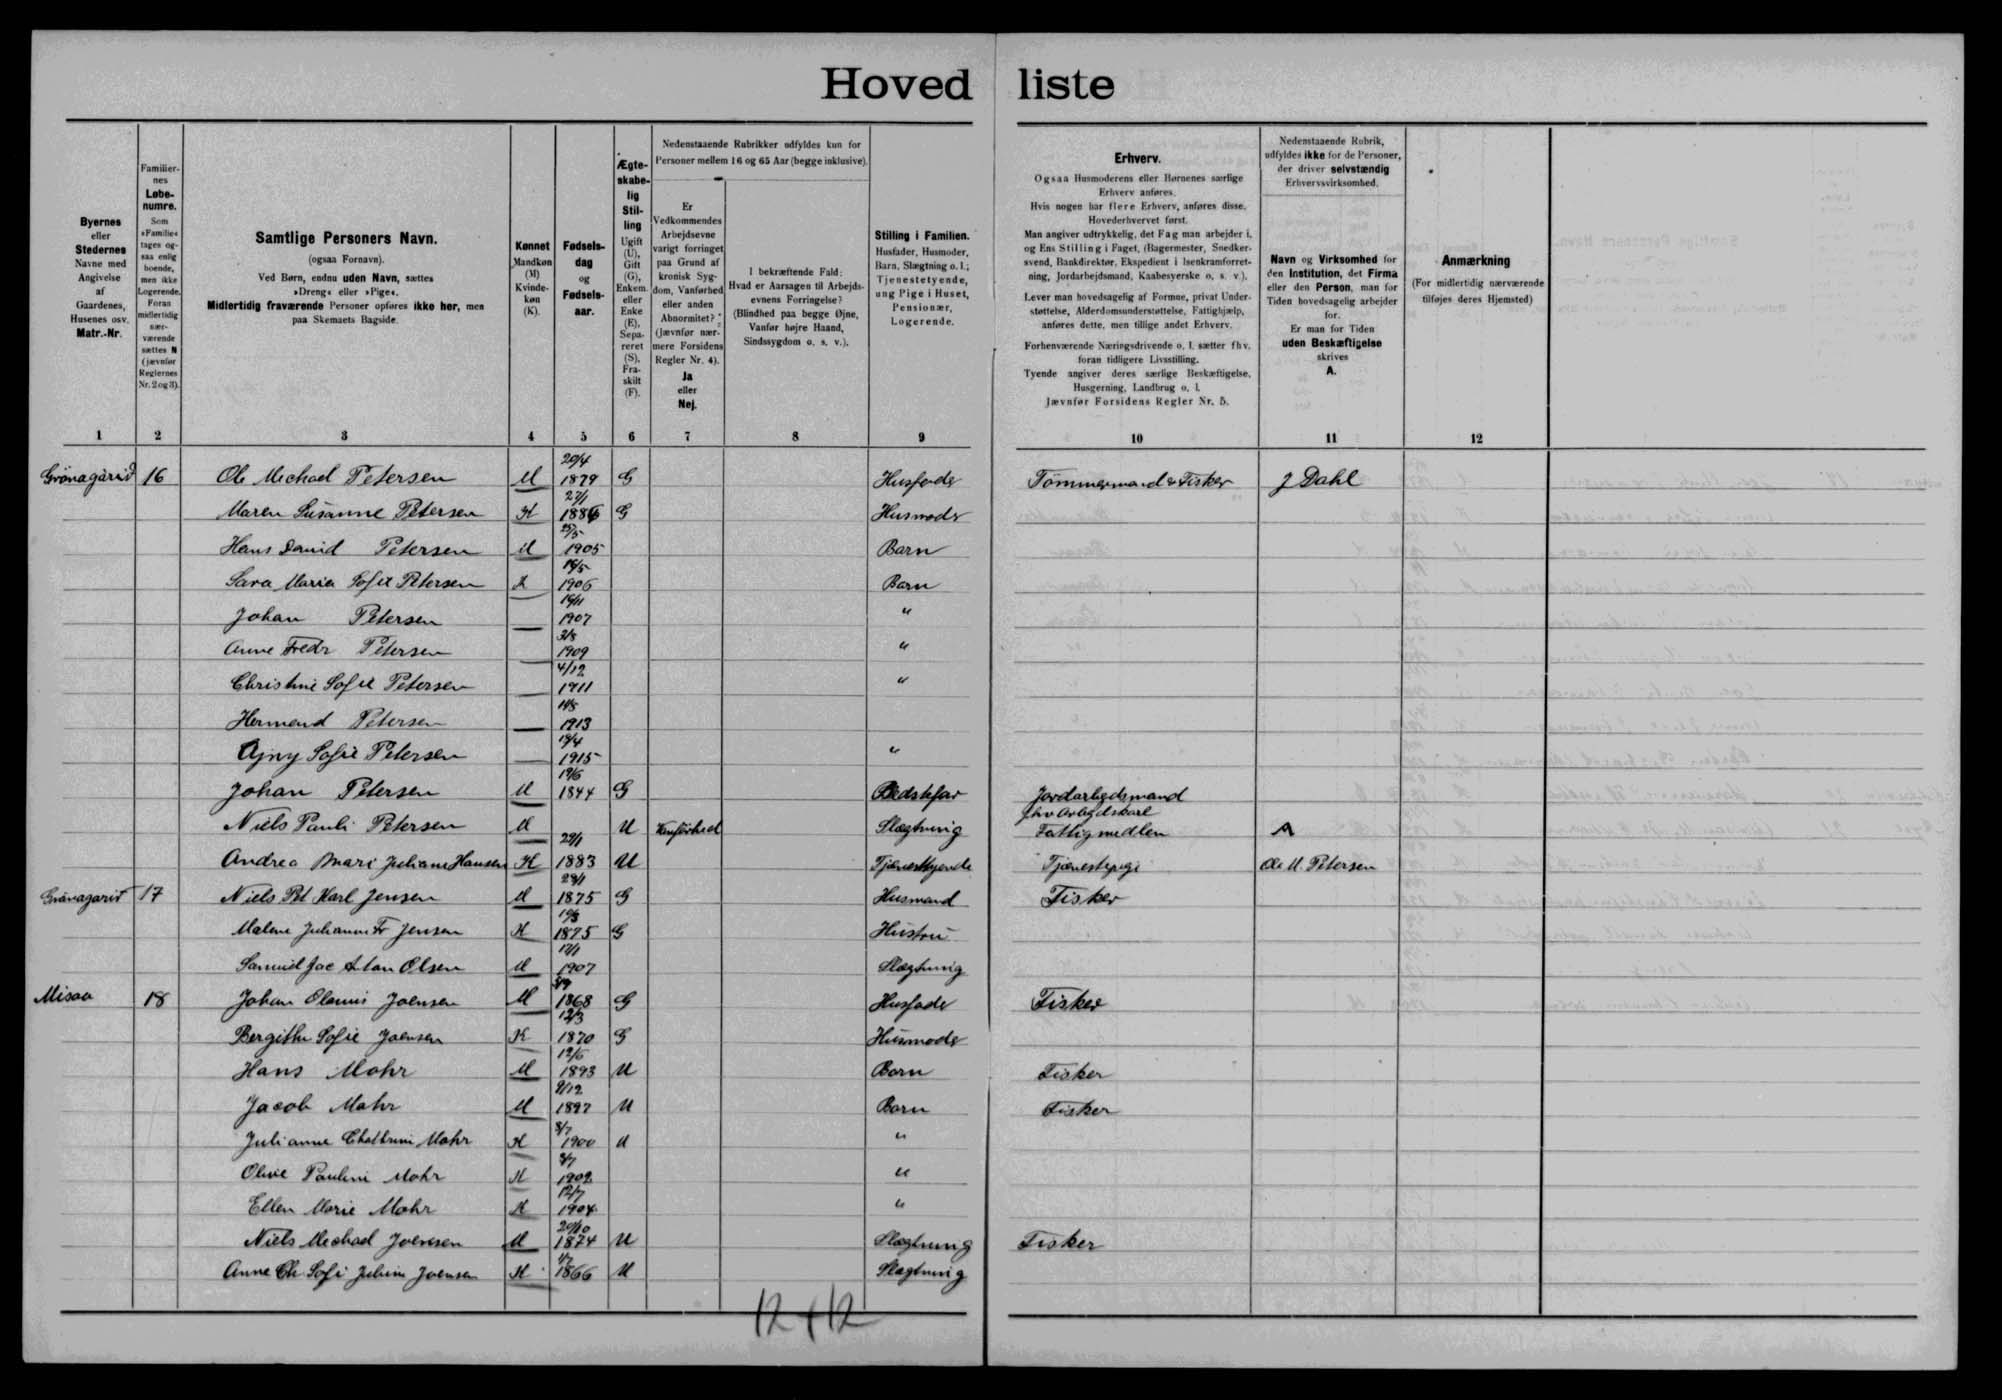 Hoved liste
Byernes
eller
Stedernes
Navne med
Angivelse
af
Gaardenes,
Husenes osv.
Matr.-Nr.
Familier-
nes
Løbe-
numre.
Som
»Familie«
tages og-
saa enlig
boende,
men ikke
Logerende.
Foran
midlertidig
nær-
værende
sættes N
(jævnfør
Reglernes
Nr. 2 og 3).
Samtlige Personers Navn.
(ogsaa Fornavn).
Ved Børn, endnu uden Navn, sættes
»Dreng« eller »Pige«.
Midlertidig fraværende Personer opføres ikke her, men
paa Skemaets Bagside.
Kønnet
Mandkøn
(M)
Kvinde-
køn
(K).
Fødsels-
dag
og
Fødsels-
aar.
Ægte-
skabe-
lig
Stil-
ling
Ugift
(U),
Gift
(G),
Enkem.
eller
Enke
(E),
Sepa-
reret
(S),
Fra-
skilt
(F).
Nedenstaaende Rubrikker udfyldes kun for
Personer mellem 16 og 65 Aar (begge inklusive).
Er
Vedkommendes
Arbejdsevne
varigt forringet
paa Grund af
kronisk Syg-
dom, Vanførhed
eller anden
Abnormitet?
(Jævnfør nær-
mere Forsidens
Regler Nr. 4).
Ja
eller
Nej.
I bekræftende Fald:
Hvad er Aarsagen til Arbejds-
evnens Forringelse?
(Blindhed paa begge Øjne,
Vanfør højre Haand,
Sindssygdom o. s. v.).
Stilling i Familien.
Husfader, Husmoder,
Barn, Slægtning o. l.;
Tjenestetyende,
ung Pige i Huset,
Pensionær,
Logerende.
Erhverv.
Ogsaa Husmoderens eller Børnenes særlige
Erhverv anføres.
Hvis nogen har flere Erhverv, anføres disse,
Hovederhvervet først.
Man angiver udtrykkelig, det Fag man arbejder i,
og Ens Stilling i Faget, (Bagermester, Snedker-
svend, Bankdirektør, Ekspedient i Isenkramforret-
ning, Jordarbejdsmand, Kaabesyerske o. s. v.).
Lever man hovedsagelig af Formue, privat Under-
støttelse, Alderdomsunderstøttelse, Fattighjælp,
anføres dette, men tillige andet Erhverv.
Forhenværende Næringsdrivende o. l. sætter fhv.
foran tidligere Livsstilling.
Tyende angiver deres særlige Beskæftigelse,
Husgerning, Landbrug o. l.
Jævnfør Forsidens Regler Nr. 5.
Nedenstaaende Rubrik,
udfyldes ikke for de Personer,
der driver selvstændig
Erhvervsvirksomhed.
Navn og Virksomhed for
den Institution, det Firma
eller den Person, man for
Tiden hovedsagelig arbejder
for.
Er man for Tiden
uden Beskæftigelse
skrives
A.
Anmærkning
(For midlertidig nærværende
tilføjes deres Hjemsted)
1 2 3 4 5 6 7 8 9 10 11 12
Grönagarid 16 Ole Michael Petersen M 20/4 1879 G Husfader Tömmermand & Fisker J Dahl
Maren Susanne Petersen K 27/1 1886 G Husmoder
Hans David Petersen M 1905 Barn
Sara Maria Sofie Petersen K 1906 Barn
Johan Petersen 1907 "
Anne Fredr Petersen 3/8 1909 "
Christine Sofie Petersen 4/12 1911 "
Hermand Petersen 1913
Ajny Sofie Petersen 1915 "
Johan Petersen M 19/6 1844 G Bedstefar Jordarbejdsmand
Niels Pauli Petersen M U Vanförhed Slægtning fhv Arbejdskarl Fattigmedlem A
Andrea Mari Juliane Hansen K 29/1 1883 U Tjenestetyende Tjenestepige Ole M. Petersen
Grönagarid 17 Niels Pet Karl Jensen M 1875 G Husmand Fisker
Malene Julianne Fr Jensen K 1875 G Hustru
Samuel Jac Anton Olsen M 12/1 1907 Slægtning
Misaa 18 Johan Olanus Joensen M 1868 G Husfader Fisker
Bergithe Sofie Joensen K 12/3 1870 G Husmoder
Hans Mohr M 19/6 1893 U Barn Fisker
Jacob Mohr M 9/12 1897 U Barn Fisker
Julianne Cathrine Mohr K 8/7 1900 U "
Olivie Pauline Mohr K 8/7 1902 "
Ellen Marie Mohr K 12/7 1904 "
Niels Michael Joensen M 20/10 1874 U Slægtning Fisker
Anne Ch Sofi Juline Joensen K 1866 U Slægtning
12 + 12